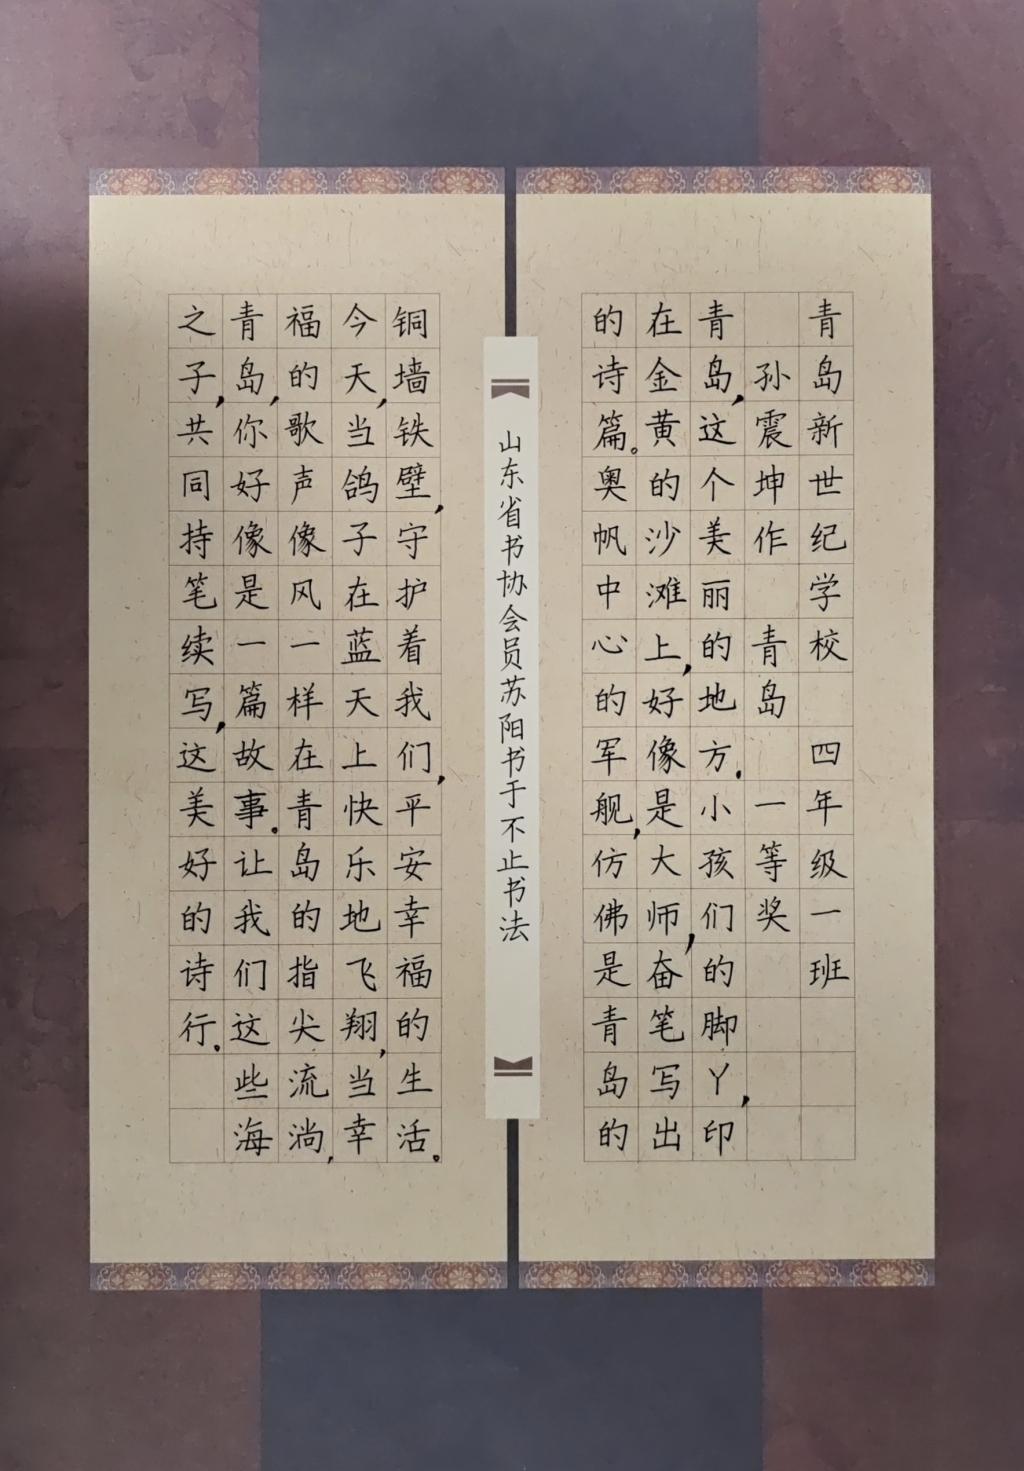 青岛新世纪学校 四年级一班
孙震坤作 青岛 一等奖
青岛,这个美丽的地方.小孩们的脚丫,印
在金黄的沙滩上,好像是大师,奋笔写出
的诗篇。奥帆中心的军舰,仿佛是青岛的
山东省书协会员苏阳书于不止书法
铜墙铁壁,守护着我们,平安幸福的生活。
今天,当鸽子在蓝天上快乐地飞翔,当幸
福的歌声像风一样在青岛的指尖流淌,
青岛,你好像是一篇故事。让我们这些海
之子,共同持笔续写,这美好的诗行.